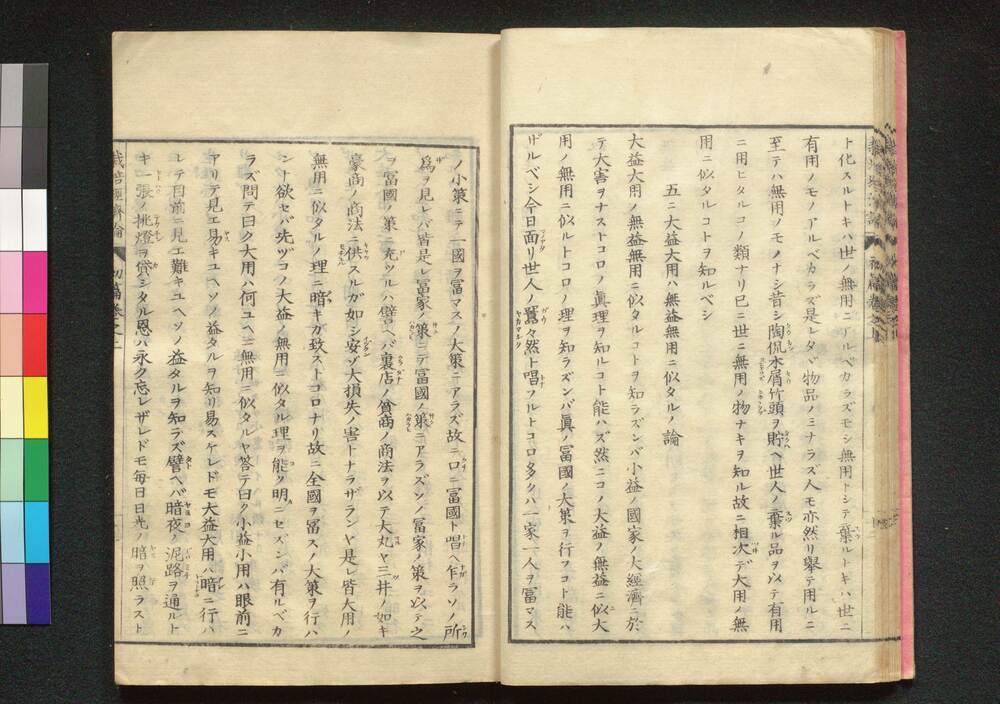 ト化スルトキハ世ノ無用ニールベカラズモシ無用トシテ棄ルトキハ世ニ
有用ノモノアルベカラズ是レタヾ物品ノミナラズ人モ亦然リ擧テ用ルニ
至テハ無用ノモノナシ昔シ陶侃木屑竹頭ヲ貯ヘ世人ノ棄ル品ヲ以テ有用
ニ用ヒタルコノ類ナリ已ニ世ニ無用ノ物ナキヲ知ル故ニ相次デ大用ノ無
用ニ似タルコトヲ知ルベシ
五ニ大益大用ハ無益無用ニ似タルノ論
大益大用ノ無益無用ニ似タルコトヲ知ラズンバ小益ノ國家ノ大經濟ニ於
テ大害ヲナストコロノ眞理ヲ知ルコト能ハズ然ニコノ大益ノ無益ニ似大
用ノ無用ニ似ルトコロノ理ヲ知ラズンバ眞ノ冨國ノ大策ヲ行フコト能ハ
ザルベシ今日面リ世人ノ囂々然ト唱フルトコロ多クハ一家一人ヲ冨マス
ノ小策ニテ一國ヲ冨マスノ大策ニアラズ故ニ口ニ冨國ト唱ヘ乍ラソノ所
爲ヲ見レバ皆是レ冨家ノ策ニテ冨國ノ策ニアラズソノ冨家ノ策ヲ以テ之
ヲ冨國ノ策ニ充ツルハ譬ヘバ裏店ノ貧商ノ商法ヲ以テ大丸ヤ三井ノ如キ
豪商ノ商法ニ供スルガ如シ安ゾ大損失ノ害トナラザランヤ是レ皆大用ノ
無用ニ似タルノ理ニ暗キガ致ストコロナリ故ニ全國ヲ冨スノ大策ヲ行ハ
ント欲セバ先ヅコノ大益ノ無用ニ似タル理ヲ能ク明ニセズンバ有ルベカ
ラズ問テ曰ク大用ハ何ユヘニ無用ニ似タルヤ答テ曰ク小益小用ハ眼前ニ
アリテ見エ易キユヘソノ益タルヲ知リ易スケレドモ大益大用ハ暗ニ行ハ
レテ目前ニ見エ難キユヘソノ益タルヲ知ラズ譬ヘバ暗夜ノ泥路ヲ通ルト
キ一張ノ挑燈ヲ貸シタル恩ハ永ク忘レザレドモ毎日日光ノ暗ヲ照ラスト
栽培經濟論 初篇卷之二